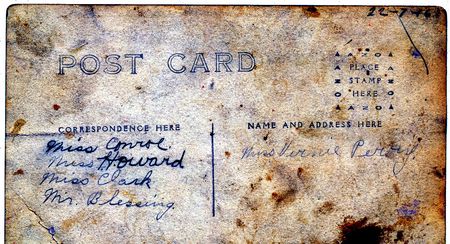 POST CARD
AZO
PLACE
STAMP
HERE
AZO
CORRESPONDENCE HERE
NAME AND ADDRESS HERE
Miss Conroe
Miss Howard
Miss Clark
Mr. Blessing
Miss Vernie